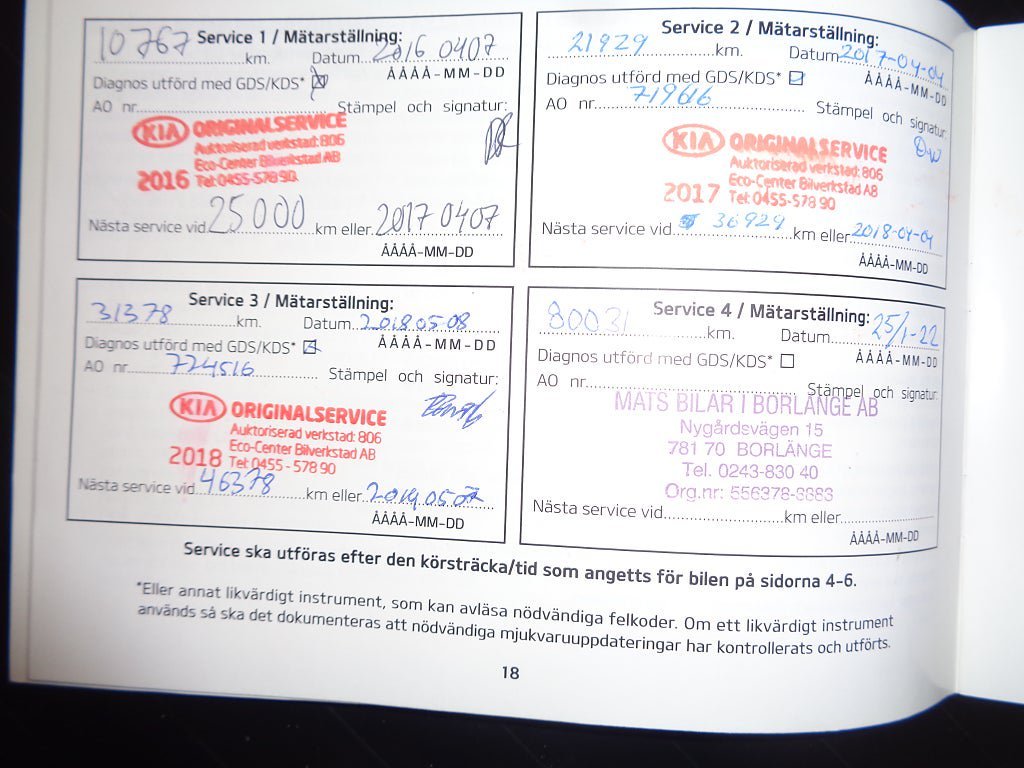 Service 1 / Mätarställning:
10767 km. Datum 2016 0407
ÅÅÅÅ-MM-DD
Diagnos utförd med GDS/KDS*
AO nr. Stämpel och signatur:
KIA ORIGINALSERVICE
Auktoriserad verkstad: 806
Eco-Center Bilverkstad AB
2016 Tel: 0455-578 90
Nästa service vid 25000 km eller 2017 0407
ÅÅÅÅ-MM-DD
Service 2 / Mätarställning:
21929 km. Datum 2017-04-04
ÅÅÅÅ-MM-DD
Diagnos utförd med GDS/KDS*
AO nr. 719616 Stämpel och signatur:
KIA ORIGINALSERVICE
Auktoriserad verkstad: 806
Eco-Center Bilverkstad AB
2017 Tel: 0455-578 90
Nästa service vid 36929 km eller 2018-04-04
ÅÅÅÅ-MM-DD
Service 3 / Mätarställning:
31378 km. Datum 2018 05-08
ÅÅÅÅ-MM-DD
Diagnos utförd med GDS/KDS*
AO nr. 724516 Stämpel och signatur:
KIA ORIGINALSERVICE
Auktoriserad verkstad: 806
Eco-Center Bilverkstad AB
2018 Tel: 0455-578 90
Nästa service vid 46378 km eller
ÅÅÅÅ-MM-DD
Service 4 / Mätarställning:
80031 km. Datum 25/1-22
ÅÅÅÅ-MM-DD
Diagnos utförd med GDS/KDS*
AO nr. Stämpel och signatur:
MATS BILAR I BORLÄNGE AB
Nygårdsvägen 15
781 70 BORLÄNGE
Tel. 0243-830 40
Org.nr: 556378-8883
Nästa service vid km eller
ÅÅÅÅ-MM-DD
Service ska utföras efter den körsträcka/tid som angetts för bilen på sidorna 4-6.
*Eller annat likvärdigt instrument, som kan avläsa nödvändiga felkoder. Om ett likvärdigt instrument
används så ska det dokumenteras att nödvändiga mjukvaruuppdateringar har kontrollerats och utförts.
18